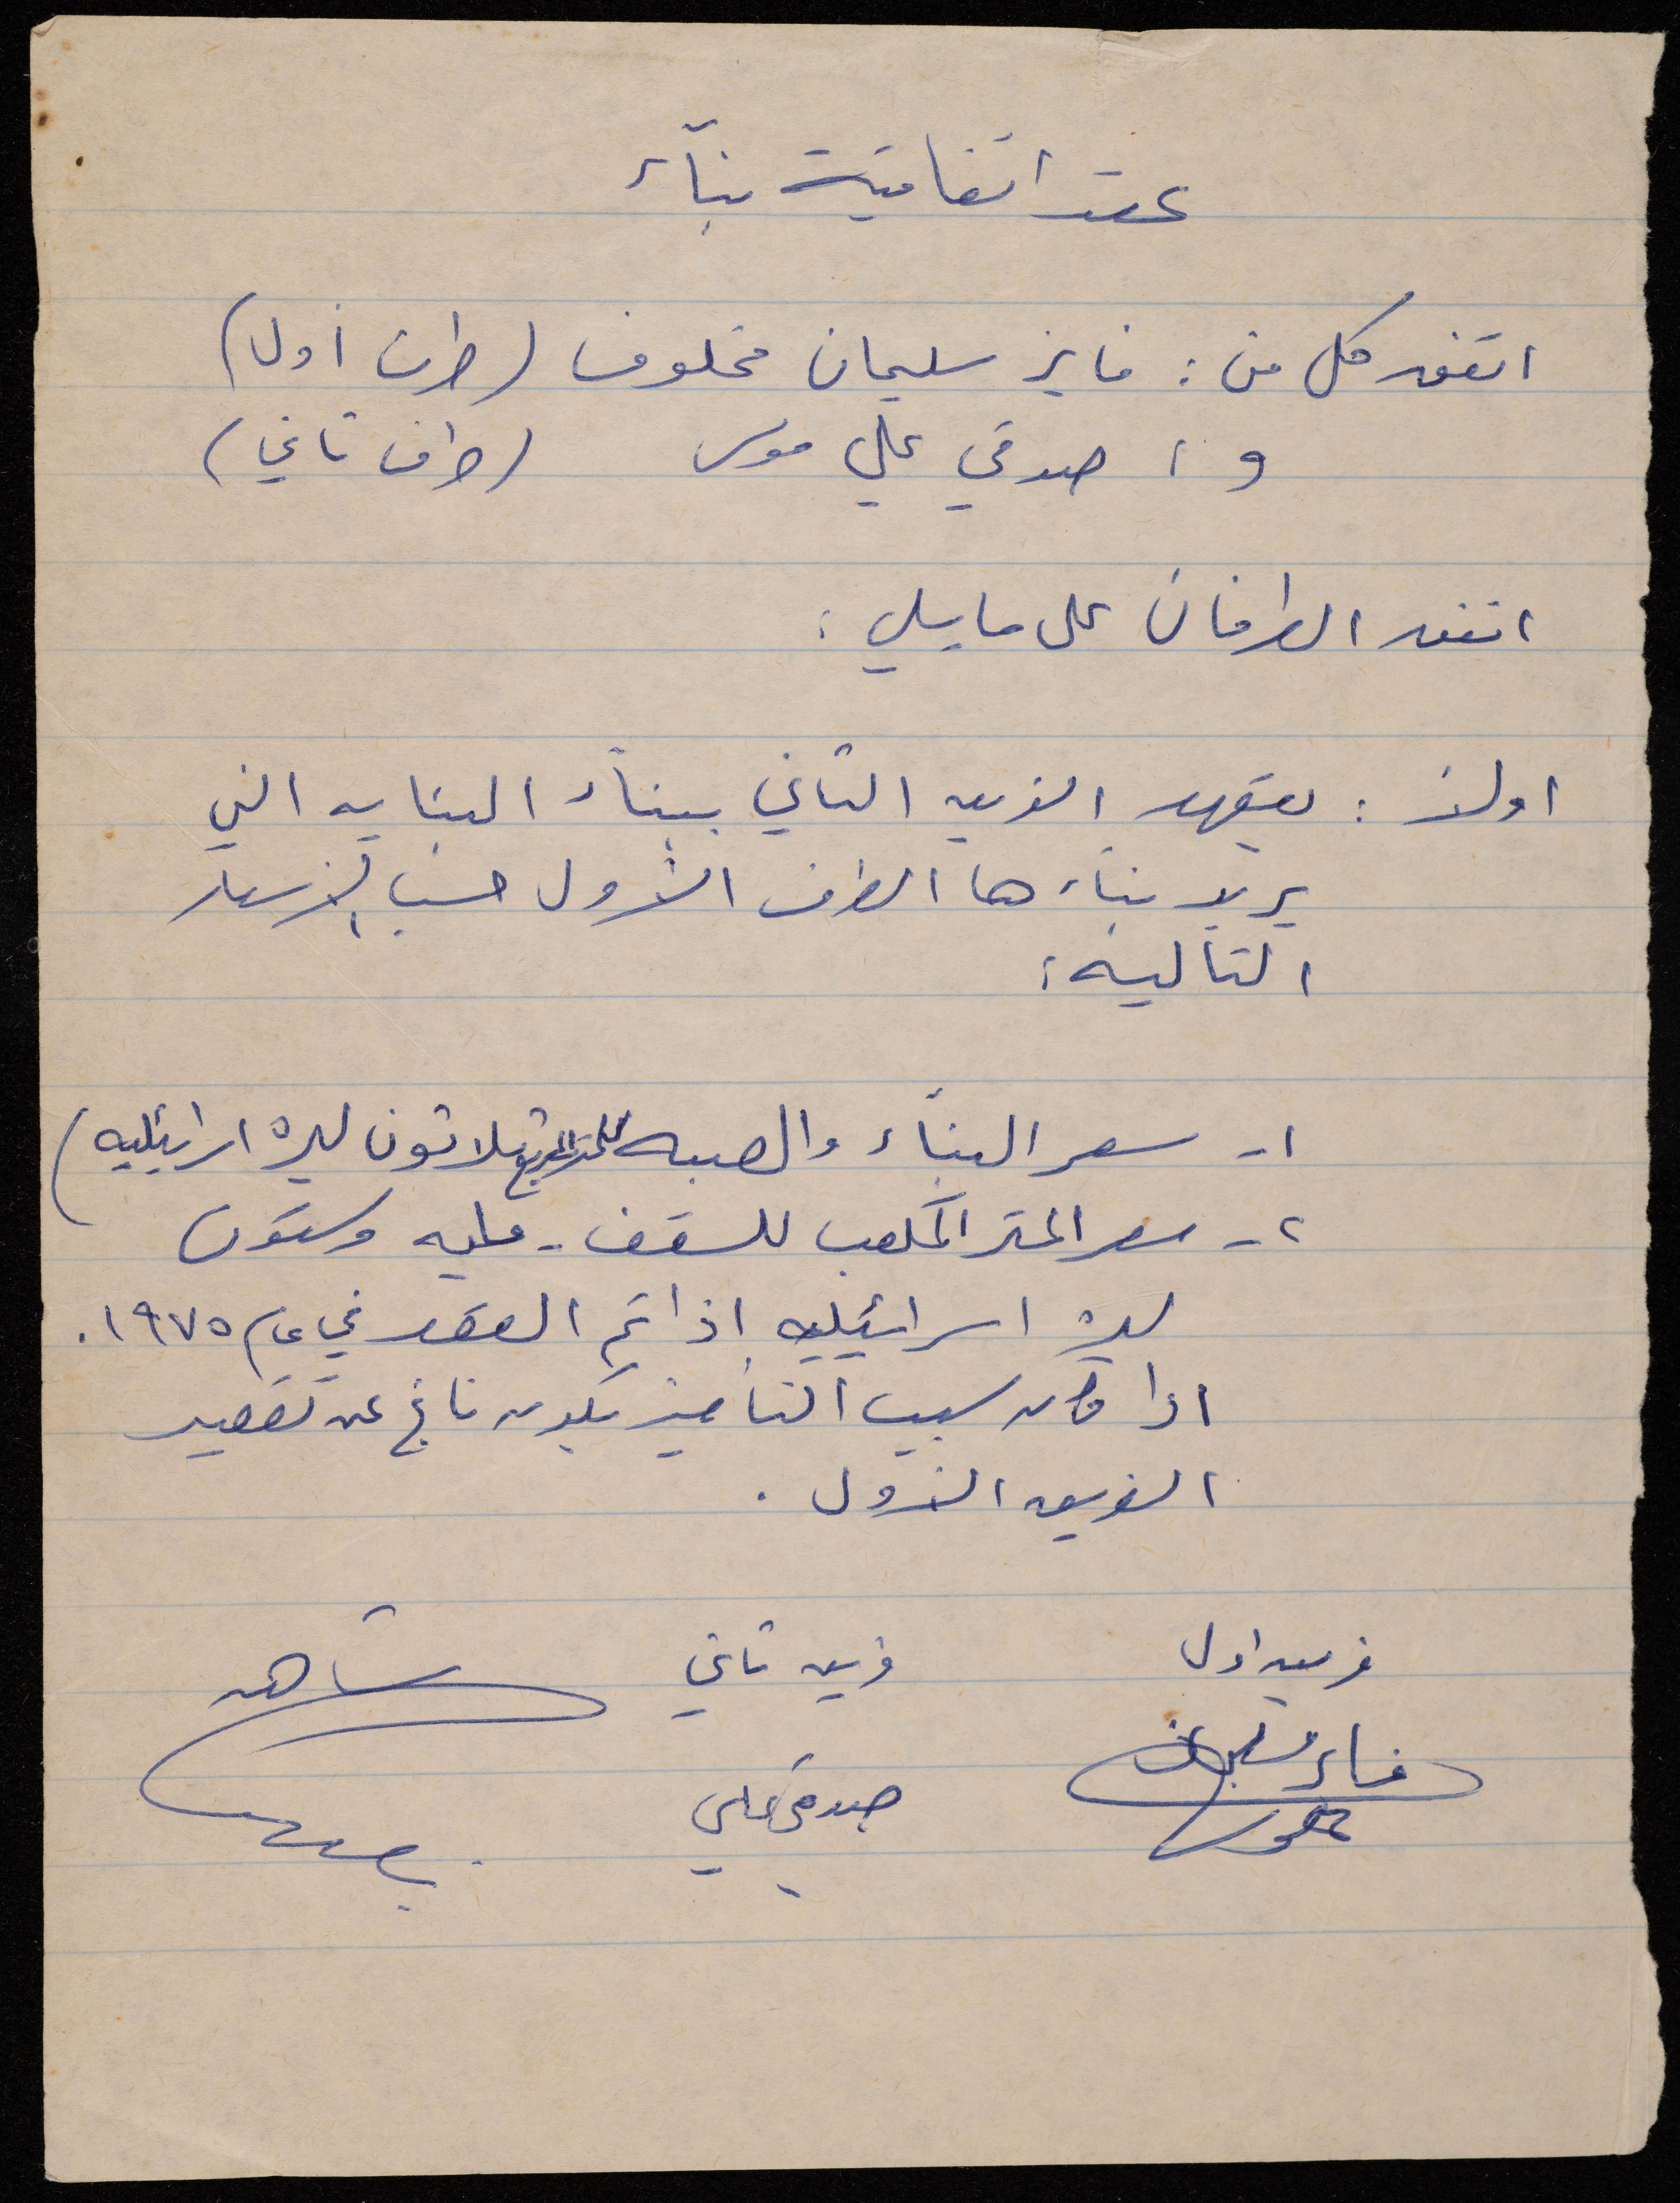 عقد اتفاقية بنآء
اتفق كل من : فايز سليمان مخلوف (طرف أول)
و : صدقي علي موسى (طرف ثاني)
اتفق الطرفان على ما يلي :
اولاً : يتعهد الفريق الثاني ببنآء البنايه التي
يريد بناءها الطرف الأول حسب الأسعار
التاليه :
١- سعر البنآء والصبه للمتر المربع ثلاثون ليرة اسرائيليه)
٢- سعر المتر المكعب للسقف - مايه وستون
ليرة اسرائيليه اذا تم العقد في عام ١٩٧٥.
اذا كان سبب التأخير يكون ناتج عن تقصير
الفريق الأول .
فريق اول
فريق ثاني
شاهد
فايز سليمان
مخلوف
صدقي علي